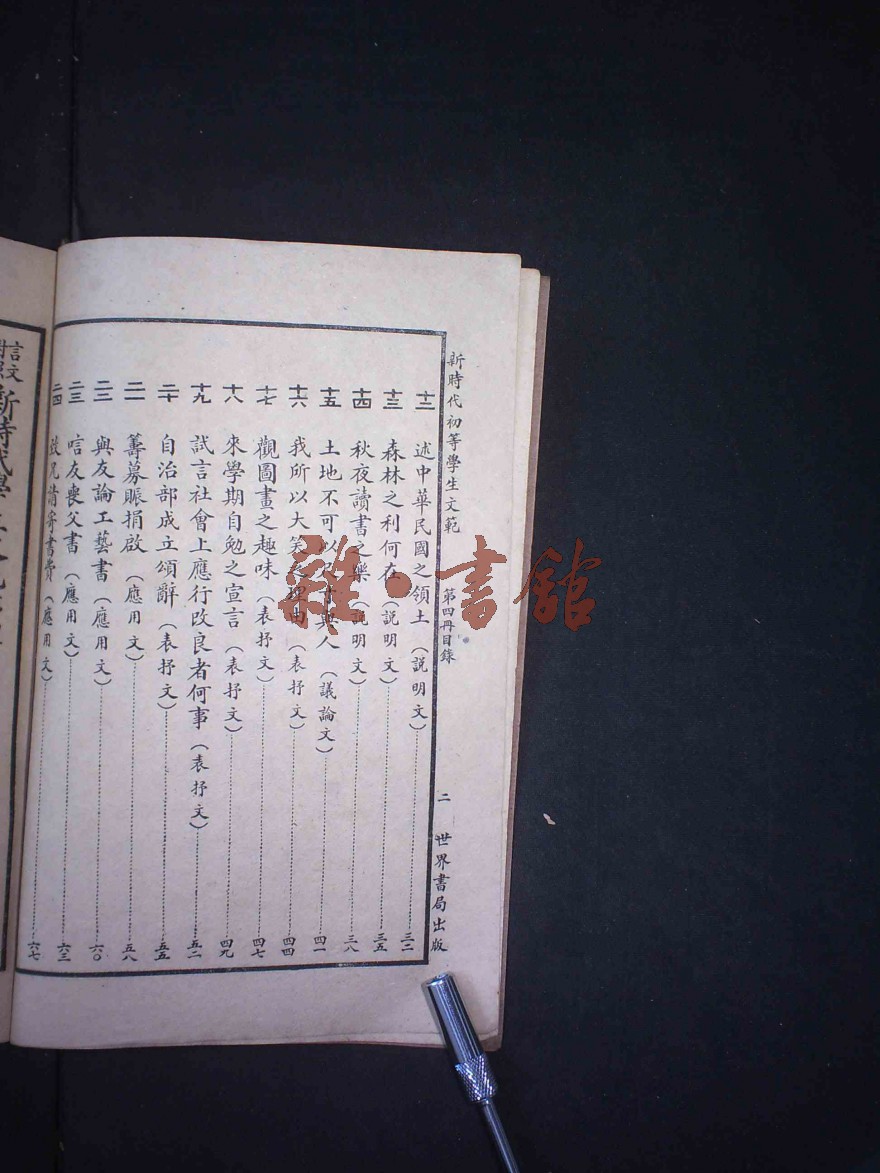 新時代初等學生文範 第四冊目錄 二 世界書局出版
十二 述中華民國之領土(説明文)三二
十三 森林之利何在(説明文)三五
十四 秋夜讀書之樂(説明文)三八
十五 土地不可以尺寸與人(議論文)四一
十六 我所以大笑之理由(表抒文)四四
十七 觀圖畫之趣味(表抒文)四七
十八 來學期自勉之宣言(表抒文)四九
十九 試言社會上應行改良者何事(表抒文)五二
二十 自治部成立頌辭(表抒文)五五
二一 籌募賑捐啟(應用文)五八
二二 與友論工藝書(應用文)六〇
二三 唁友喪父書(應用文)六三
二四 兄請寄書費(應用文)六七
言文對照新時代學生
雜·書館